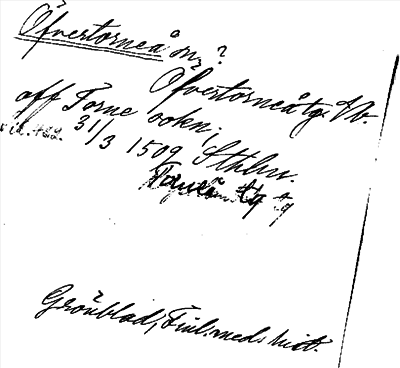 Öfvertorneå sn?
Öfvertorneå tg. Vb.
aff Torne sockn,
31/3 1509 Sthlm.
Torneå tg
Grönblad, Finl. med. hist.